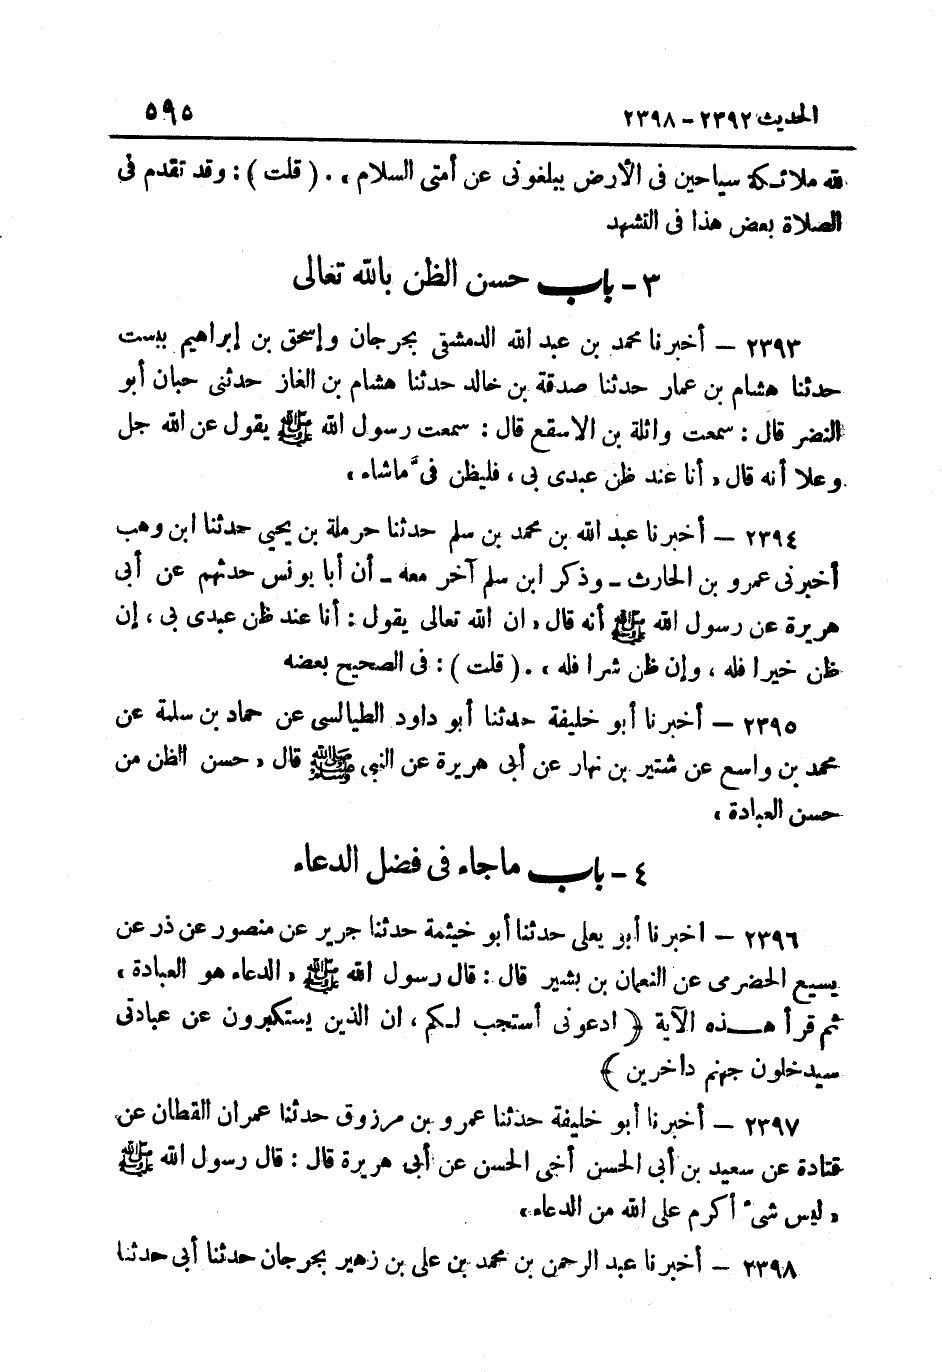 الحديث ٢٣٩٢ - ٢٣٩٨ ٥٩٥
لله ملائكة سياحين فى الأرض يبلغونى عن أمتى السلام » . ( قلت ) : وقد تقدم فى
الصلاة بعض هذا فى التشهد
٣ - باب حسن الظن بالله تعالى
٢٣٩٣ – أخبرنا محمد بن عبد الله الدمشقى بجرجان وإسحق بن إبراهيم ببست
حدثنا هشام بن عمار حدثنا صدقة بن خالد حدثنا هشام بن الغاز حدثنى حبان أبو
النضر قال : سمعت واثلة بن الاسقع قال : سمعت رسول الله ﷺ يقول عن الله جل
وعلا أنه قال « أنا عند ظن عبدى بى ، فليظن فىَّ ماشاء »
٢٣٩٤ – أخبرنا عبد الله بن محمد بن سلم حدثنا حرملة بن يحيى حدثنا ابن وهب
أخبرنى عمرو بن الحارث - وذكر ابن سلم آخر معه - أن أبا يونس حدثهم عن أبى
هريرة عن رسول الله ﷺ أنه قال « ان الله تعالى يقول : أنا عند ظن عبدى بى ، إن
ظن خيرا فله ، وإن ظن شرا فله » . ( قلت ) : فى الصحيح بعضه
٢٣٩٥ – أخبرنا أبو خليفة حدثنا أبو داود الطيالسى عن حماد بن سلمة عن
محمد بن واسع عن شتير بن نهار عن أبى هريرة عن النبى ﷺ قال « حسن الظن من
حسن العبادة »
٤ - باب ماجاء فى فضل الدعاء
٢٣٩٦ – اخبرنا أبو يعلى حدثنا أبو خيثمة حدثنا جرير عن منصور عن ذر عن
يسيع الحضرمى عن النعمان بن بشير قال : قال رسول الله ﷺ « الدعاء هو العبادة »
ثم قرأ هذه الآية ﴿ ادعونى أستجب لكم ، ان الذين يستكبرون عن عبادتى
سيدخلون جهنم داخرين ﴾
٢٣٩٧ – أخبرنا أبو خليفة حدثنا عمرو بن مرزوق حدثنا عمران القطان عن
قتادة عن سعيد بن أبى الحسن أخى الحسن عن أبى هريرة قال : قال رسول الله ﷺ
« ليس شىء أكرم على الله من الدعاء »
٢٣٩٨ – أخبرنا عبد الرحمن بن محمد بن على بن زهير بجرجان حدثنا أبى حدثنا